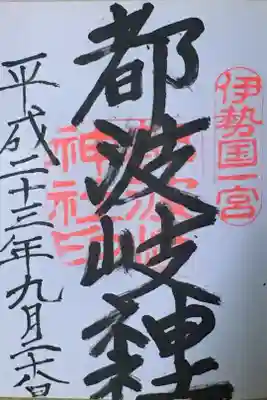 伊勢国一宮
都波岐
神社印
平成二十三年九月